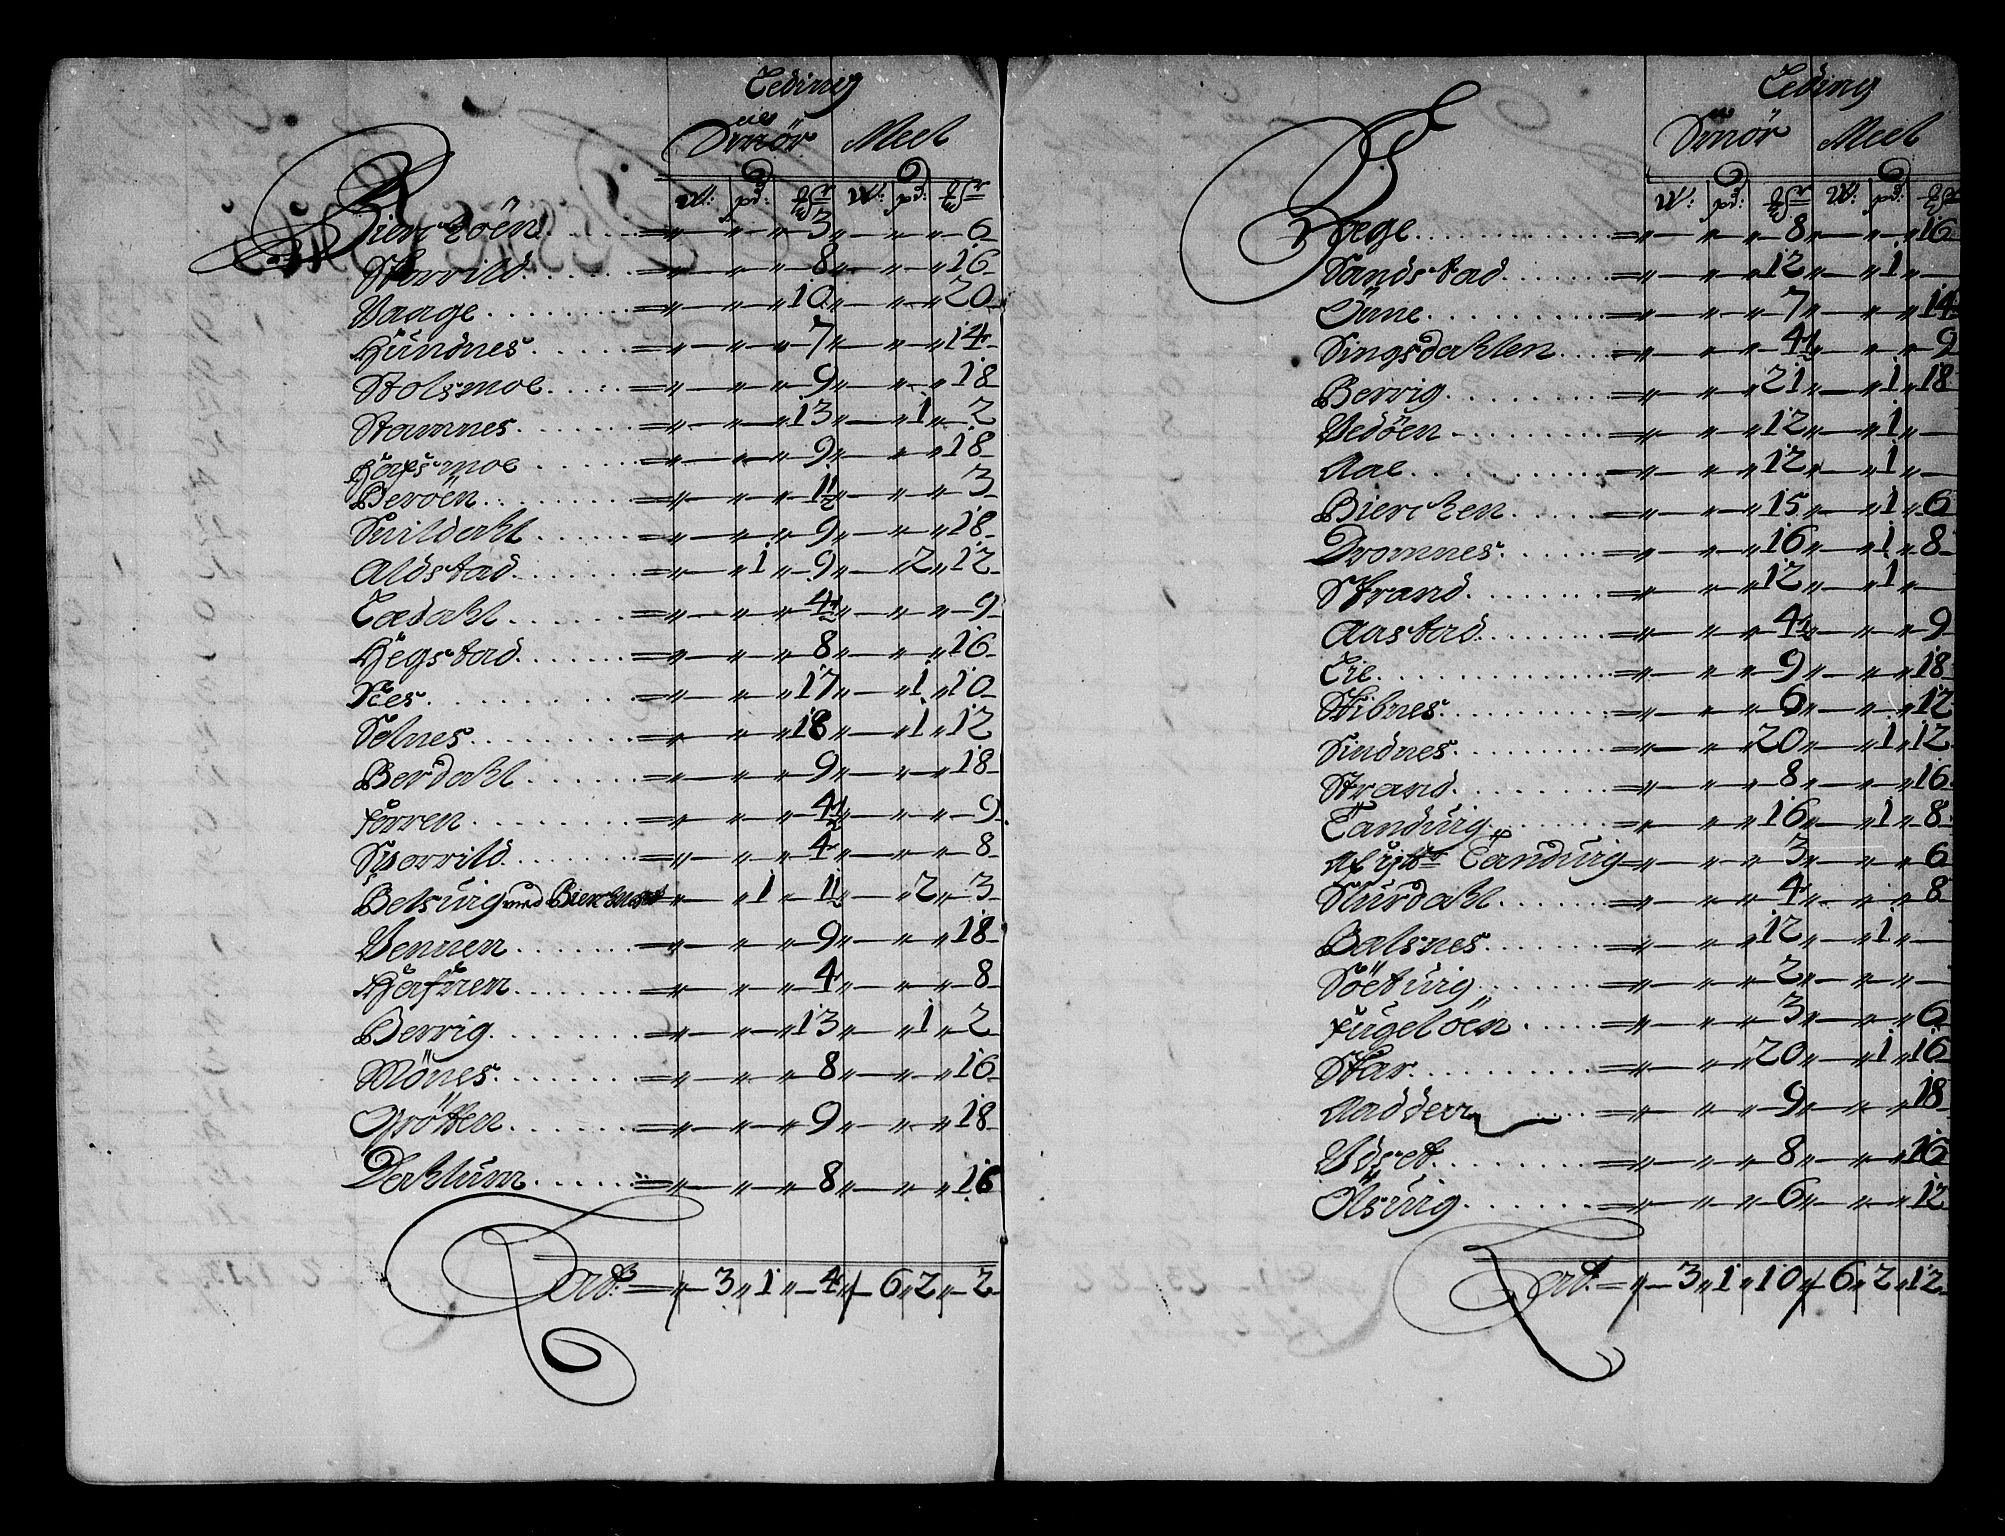 Leding
Smör Meel
W: pd: W: pd:
Bierchöen . . . = „ — „ — „ 3 „ — „ — „ 6
Storvild . . . = „ — „ — „ 8 „ — „ — „ 16
Vaage . . . = „ — „ — „ 10 „ — „ — „ 20
Hundnes . . . = „ — „ — „ 7 „ — „ — „ 14
Stolsmoe . . . = „ — „ — „ 9 „ — „ — „ 18
Stamnes . . . = „ — „ — „ 13 „ — „ 1 „ 2
Hopsmoe . . . = „ — „ — „ 9 „ — „ — „ 18
Beröen . . . = „ — „ — „ 1½ „ — „ — „ 3
Snildahl . . . = „ — „ — „ 9 „ — „ — „ 18
Aldstad . . . = „ — „ 1 „ 9 „ — „ 2 „ 12
Tædahl . . . = „ — „ — „ 4½ „ — „ — „ 9
Hegstad . . . = „ — „ — „ 8 „ — „ — „ 16
Næs . . . = „ — „ — „ 17 „ — „ 1 „ 10
Selnes . . . = „ — „ — „ 18 „ — „ 1 „ 12
Berdahl . . . = „ — „ — „ 9 „ — „ — „ 18
Forren . . . = „ — „ — „ 4½ „ — „ — „ 9
Sporrild . . . = „ — „ — „ 4 „ — „ — „ 8
Belsvig med = „ — „ 1 „ 1½ „ — „ 2 „ 3
Vennen . . . = „ — „ — „ 9 „ — „ — „ 18
Hafnen . . . = „ — „ — „ 4 „ — „ — „ 8
Berrig . . . = „ — „ — „ 13 „ — „ 1 „ 2
Mönes . . . = „ — „ — „ 8 „ — „ — „ 16
Grötten . . . = „ — „ — „ 9 „ — „ — „ 18
Dahlum . . . = „ — „ — „ 8 „ — „ — „ 16
Lat: = „ — 3 „ 1 „ 4 „ — 6 „ 2 „ 2
Leding
Smör Meel
W: pd: W: pd:
Hæge . . . = „ — „ — „ 8 „ — „ — „ 16
Sandstad . . . = „ — „ — „ 12 „ — „ 1 „ —
Ünne . . . = „ — „ — „ 7 „ — „ — „ 14
Singsdahlen . . . = „ — „ — „ 4½ „ — „ — „ 9
Berrig . . . = „ — „ — „ 21 „ — „ 1 „ 18
Vedöen . . . = „ — „ — „ 12 „ — „ 1 „ —
Aae . . . = „ — „ — „ 12 „ — „ 1 „ —
Bierchen . . . = „ — „ — „ 15 „ — „ 1 „ 6
Dromnes . . . = „ — „ — „ 16 „ — „ 1 „ 8
Strand . . . = „ — „ — „ 12 „ — „ 1 „ —
Aastad . . . = „ — „ — „ 4½ „ — „ — „ 9
Eie . . . = „ — „ — „ 9 „ — „ — „ 18
Stibnes . . . = „ — „ — „ 6 „ — „ — „ 12
Sundnes . . . = „ — „ — „ 20 „ — „ 1 „ 12
Strand . . . = „ — „ — „ 8 „ — „ — „ 16
Tandvig . . . = „ — „ — „ 16 „ — „ 1 „ 8
Tandvig = „ — „ — „ 3 „ — „ — „ 6
Slürdahl . . . = „ — „ — „ 4 „ — „ — „ 8
Balsnes . . . = „ — „ — „ 12 „ — „ 1 „ —
Söetvig . . . = „ — „ — „ 2 „ — „ — „ —
Fugelöen . . . = „ — „ — „ 3 „ — „ — „ 6
Star . . . = „ — „ — „ 20 „ — „ 1 „ 16
Aadderr . . . = „ — „ — „ 9 „ — „ — „ 18
Vdset . . . = „ — „ — „ 8 „ — „ — „ 16
Ölsvig . . . = „ — „ — „ 6 „ — „ — „ 12
Lat: = „ — 3 „ 1 „ 10 „ — 6 „ 2 „ 12